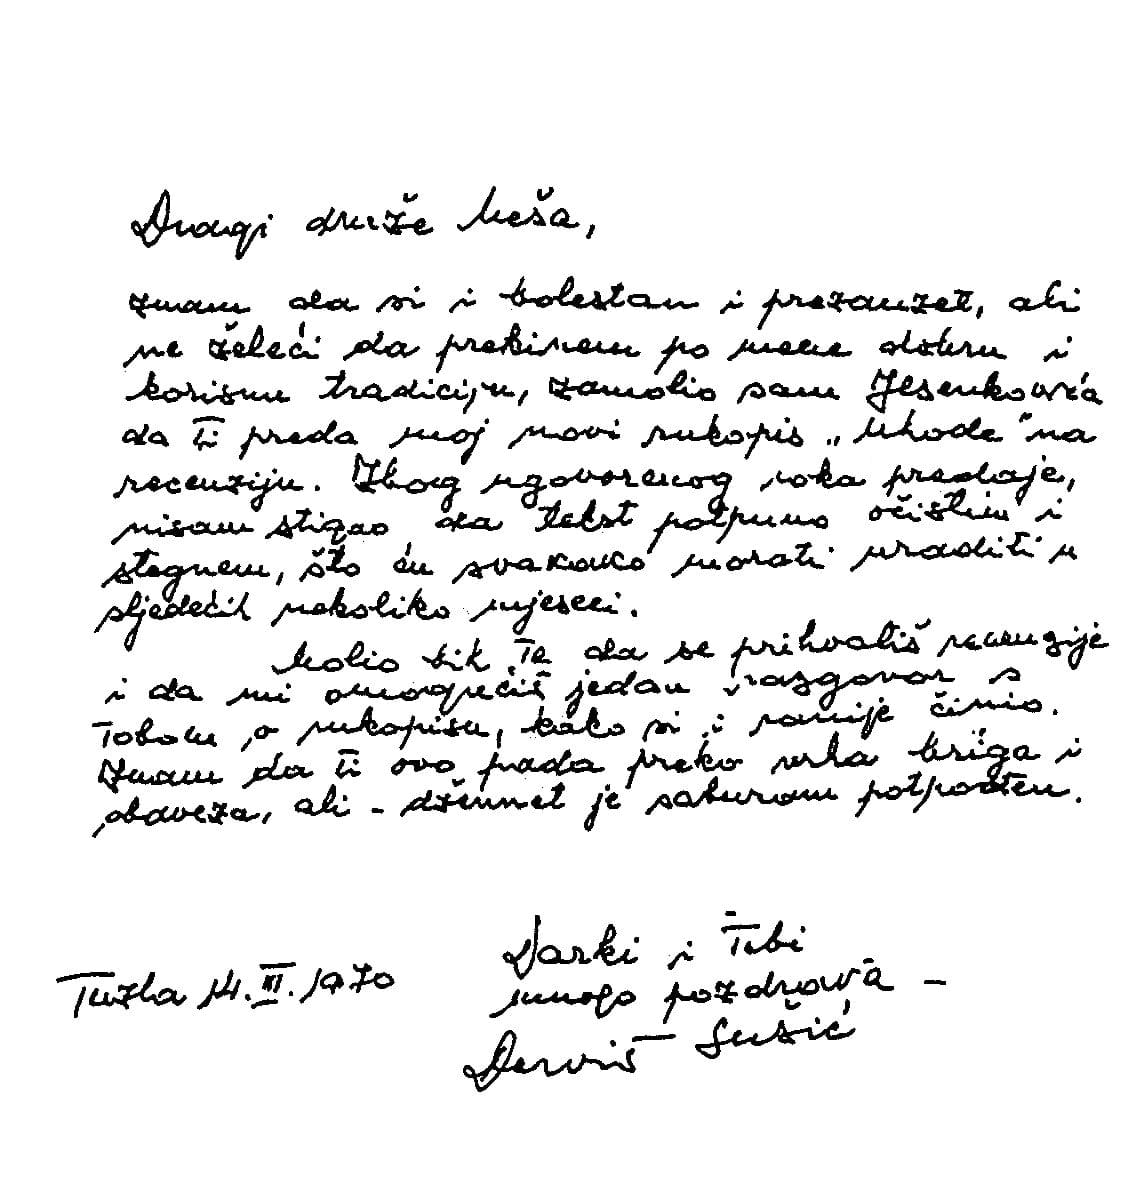 Dragi druže Meša,
znam da si i bolestan i prezauzet, ali
ne želeći da prekinem po mene dobru i
korisnu tradiciju, zamolio sam Jesenkovića
da Ti preda moj novi rukopis „Uhode" na
recenziju. Zbog ugovorenog roka predaje,
nisam stigao da tekst potpuno očistim i
stegnem, što ću svakako morati uraditi u
sljedećih nekoliko mjeseci.
Molio bih Te da se prihvatiš recenzije
i da mi omogućiš jedan razgovor s
Tobom o rukopisu, kako si i ranije činio.
Znam da Ti ovo pada preko vrh briga i
obaveza, ali - džennet je saburom potpođen.
Darki i Tebi
mnogo pozdrava -
Tuzla 14. XI. 1970
Derviš Sušić